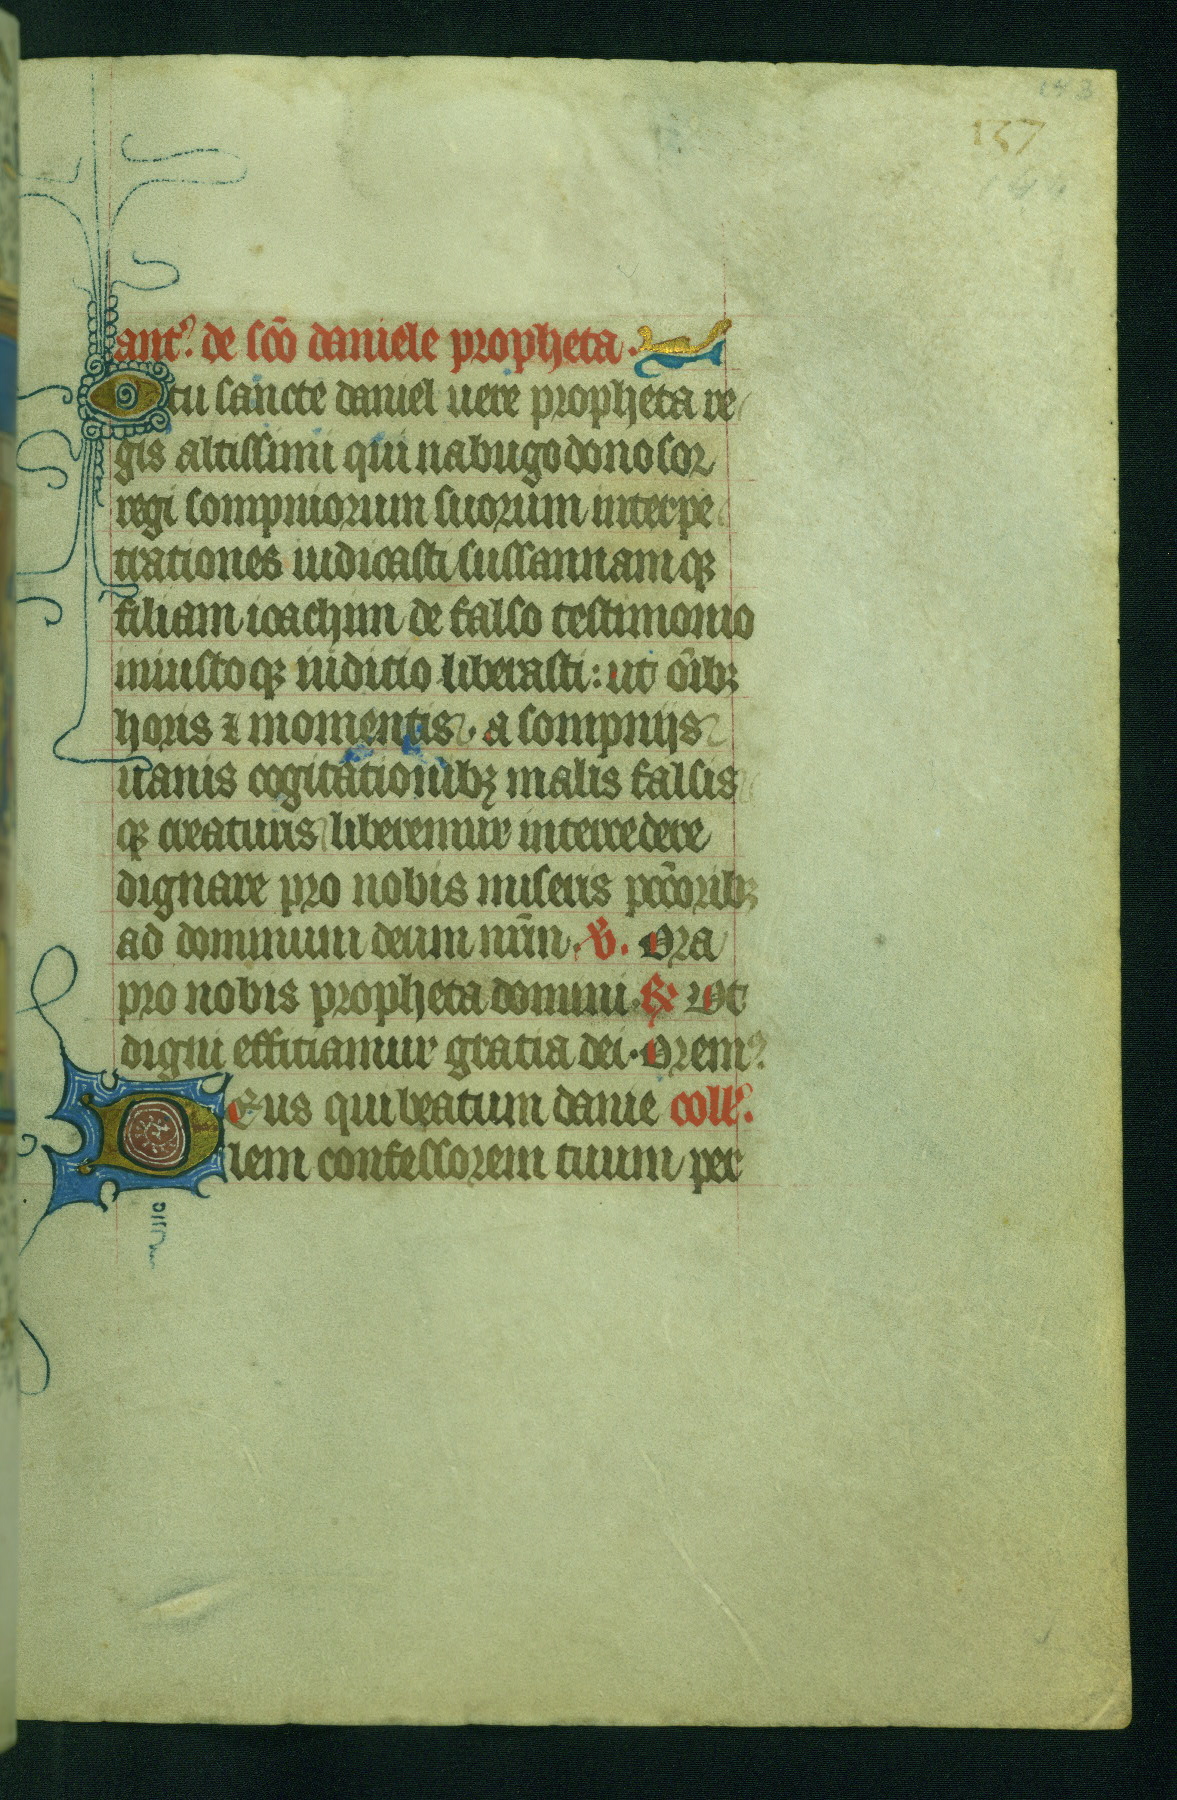 157
ant᷒. de sc̄o daniele propheta.
O tu sancte daniel uere propheta re
gis altissimi qui nabugodonosor
regi sompniorum suorum interpe
trationes iudicasti sussannamqꝫ
filiam ioachim de falso testimonio
iniustoqꝫ iuditio liberasti: ut oībꝫ
horis ⁊ momentis. a sompnijs
uanis cogitationibꝫ malis falsis
qꝫ creaturis liberemur intercedere
dignare pro nobis miseris pcc̄oribꝫ
ad dominum deum nr̄m. ℣. Ora
pro nobis propheta domini ℟ Ut
digni efficiamur gratia dei. Orem᷒
Deus qui beatum danie coll᷒.
lem confessorem tuum per